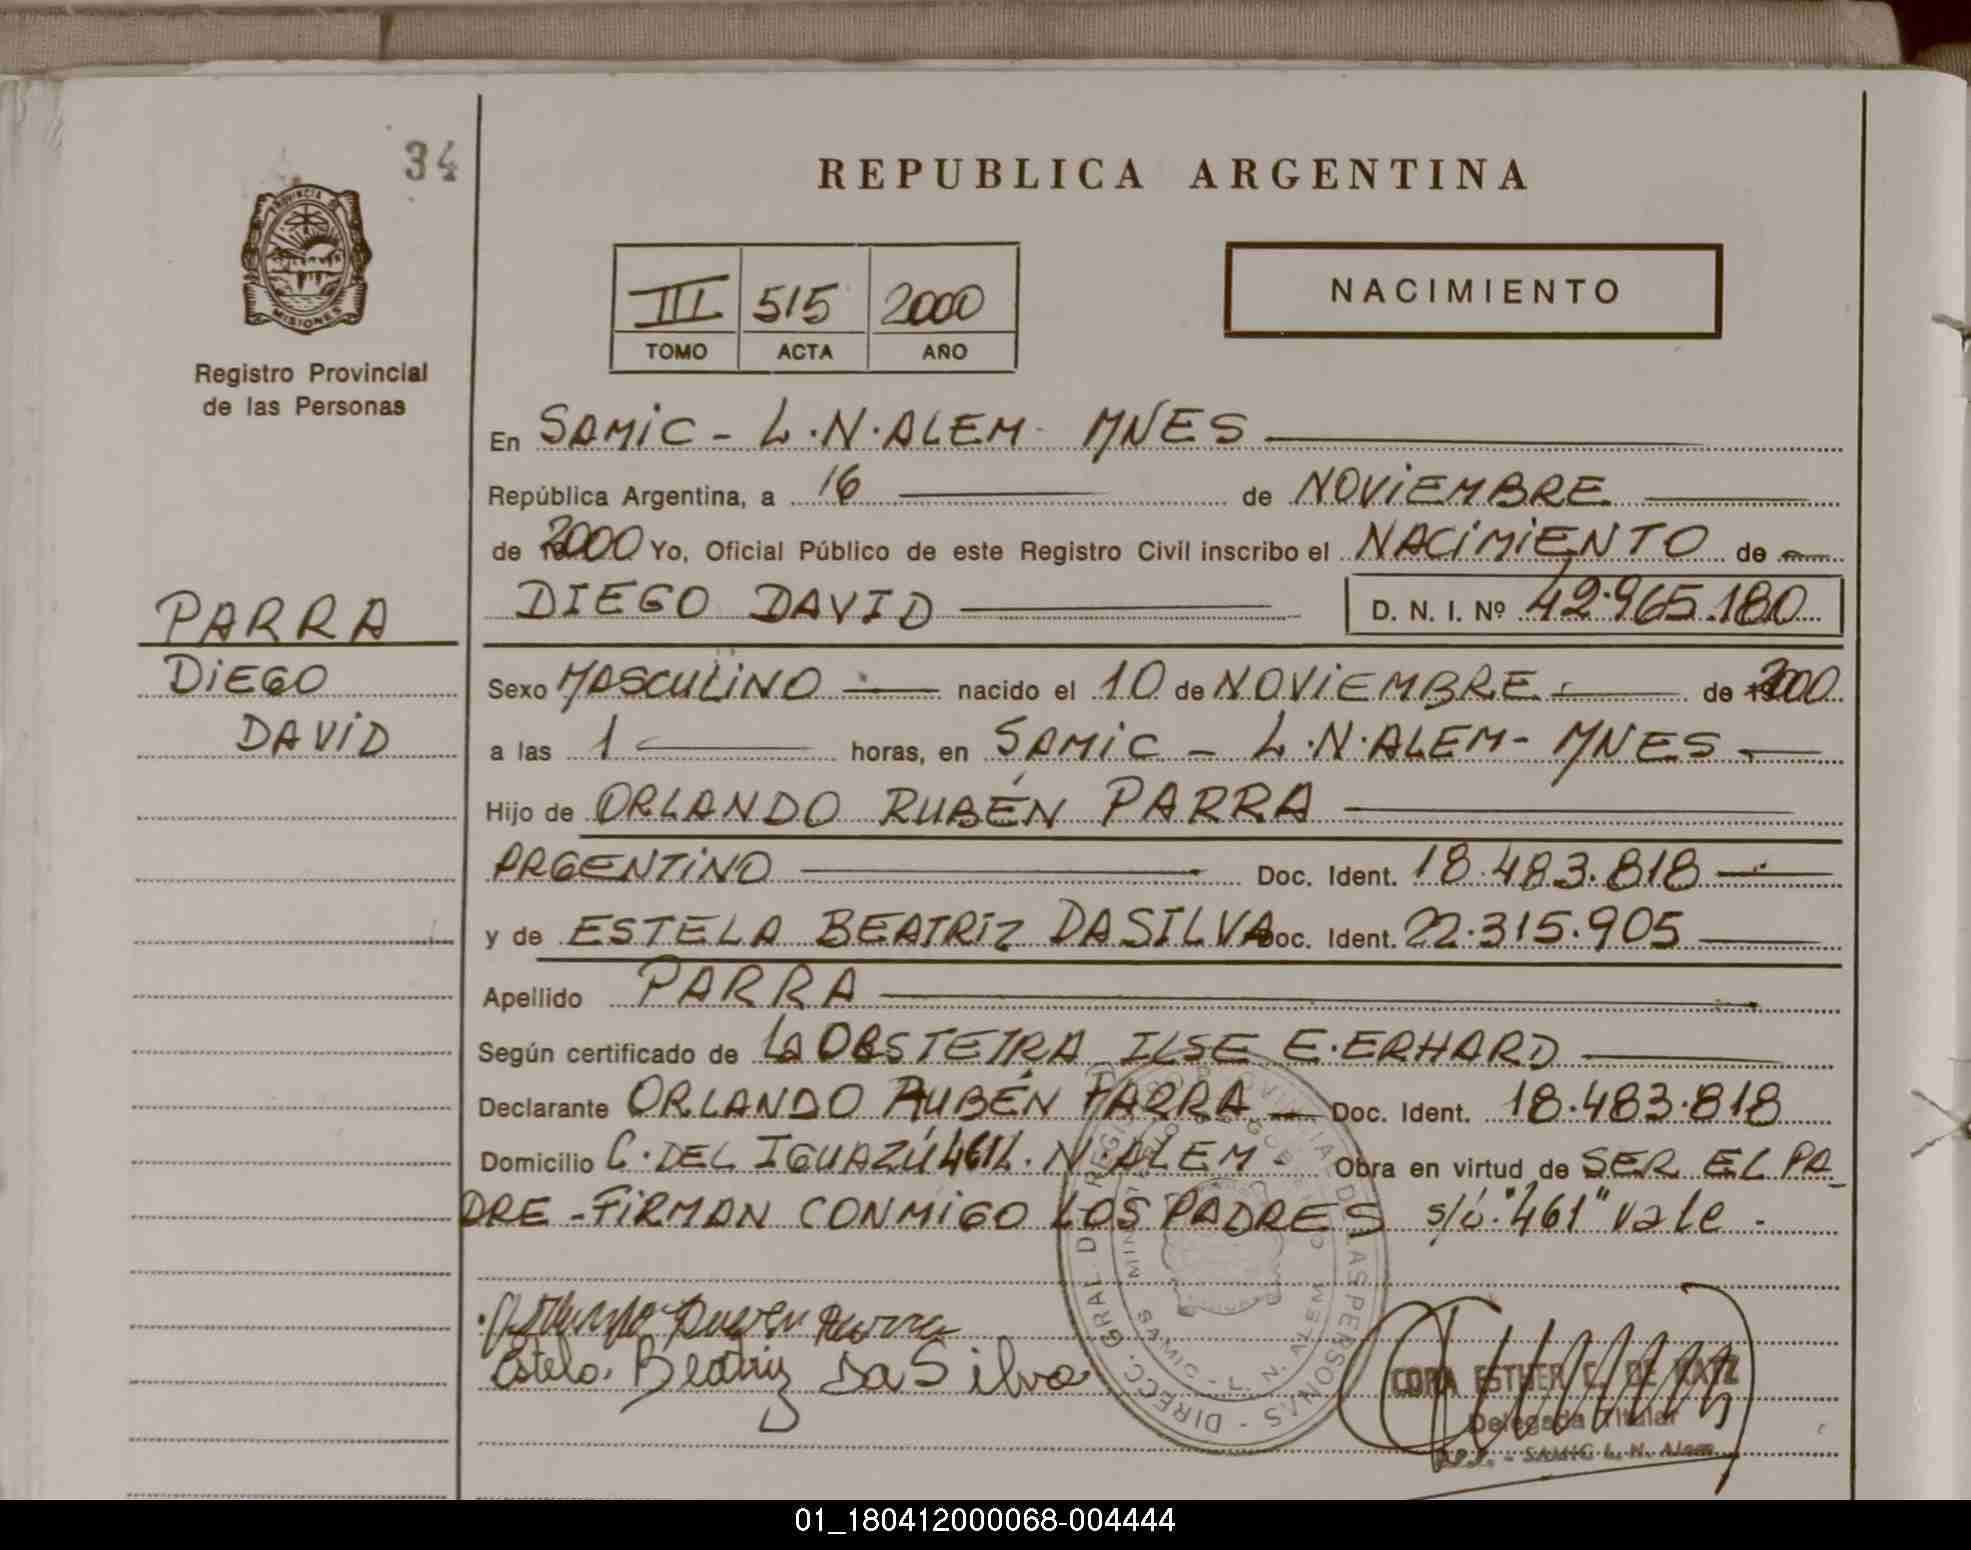 34
PROVINCIA DE
MISIONES
Registro Provincial
de las Personas
REPUBLICA ARGENTINA
III 515 2000
TOMO ACTA AÑO
NACIMIENTO
En SAMIC - L.N.ALEM- MNES
República Argentina, a 16 de NOVIEMBRE
de 2000 Yo, Oficial Público de este Registro Civil inscribo el NACIMIENTO de
DIEGO DAVID D. N. I. Nº 42.965.180
PARRA
DIEGO
DAVID
Sexo MASCULINO nacido el 10 de NOVIEMBRE de 2000
a las 1 horas, en SAMIC - L.N.ALEM- MNES
Hijo de ORLANDO RUBÉN PARRA
ARGENTINO Doc. Ident. 18.483.818
y de ESTELA BEATRIZ DASILVA Doc. Ident. 22.315.905
Apellido PARRA
Según certificado de La OBSTETRA ILSE E. ERHARD
Declarante ORLANDO RUBÉN PARRA Doc. Ident. 18.483.818
Domicilio C. DEL IGUAZÚ 461 L.N.ALEM- Obra en virtud de SER EL PA
DRE - FIRMAN CONMIGO LOS PADRES s/i: "461" vale.
Ruben Parra
Estela Beatriz Da Silva
DIRECC. GRAL. DE REGISTRO PROVINCIAL DE LAS PERSONAS
SAMIC - L. N. ALEM
ESTHER C. DE
Delegada Titular
R.P.P. - SAMIC L. N. Alem
01_180412000068-004444